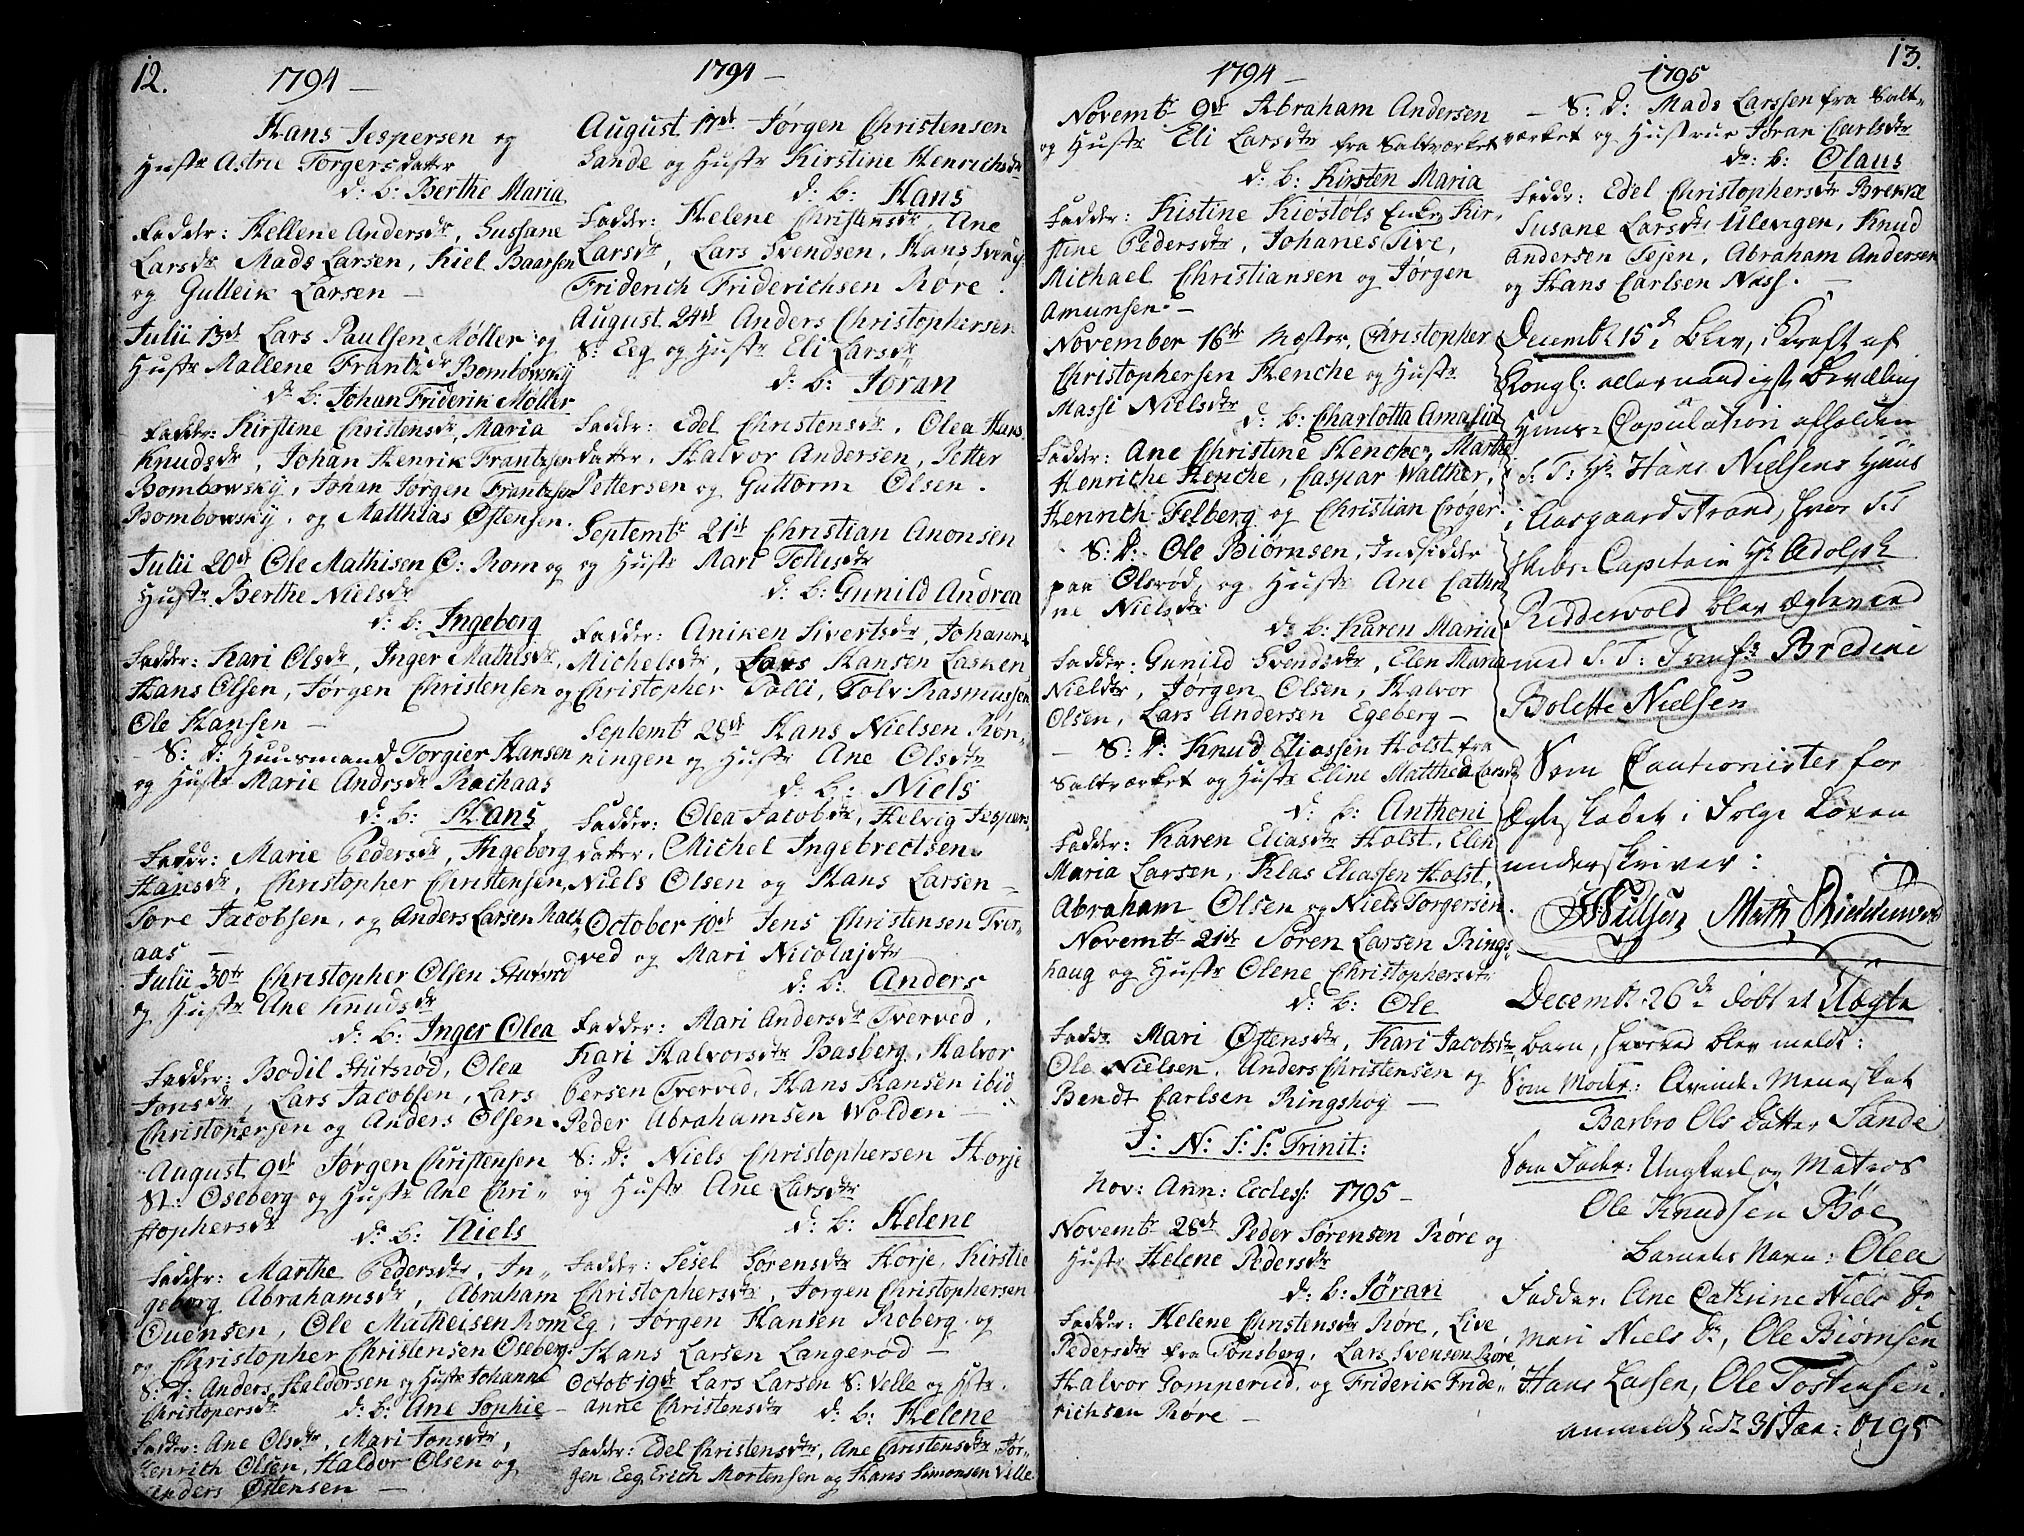 12.
1794 –
Hans Jespersen og
Hustr Astrie Torgersdatter
d: b: Berthe Maria
Fadder: Hellene Andersdr, Sussane
Larsdr Mads Larsen, Kiel Baarsen
og Gulleik Larsen –
Julii 13de Lars Paulsen Møller og
Hustr Mallene Frantzdr Bombowsky
d: b: Johan Friderik Møller
Fadder: Kirstine Christensdr, Maria
Knudsdr, Johan Henrik Frantzsen
Bombowsky, Johan Jørgen Frantzsen
Bombowsky, og Matthias Østensen.
Julii 20de Ole Mathisen E: Rom og
Hustr Berthe Nielsdr
d: b: Ingeborg
Fadder: Kari Olsdr, Inger Mathisdr,
Hans Olsen, Jørgen Christensen og
Ole Hansen –
S: D: Huusmand Torgier Hansen
og Hustr Marie Andrsdr Rachaas
d: b: Hans
Faddr: Marie Pedersdr, Ingeborg
Hansdr, Christopher Christensen,
Tore Jacobsen, og Anders Larsen Rach
aas –
Julii 30te Christopher Olsen Stutsrød
og Hustr Ane Knudsdr
d: b: Inger Olea
Fadder: Bodil Stutsrød, Olea
Jonsdr, Lars Jacobsen, Lars
Christopersen og Anders Olsen.
August 9de Jørgen Christensen
St: Oseberg og Hustr Ane Chri„
stophersdr
d: b: Niels
Fadder: Marthe Pedersdr, In„
geborg Abrahamsdr, Abraham
Ouensen, Ole Matheisen Rom
og Christopher Christensen Oseberg.
S: D: Anders Haldorsen og Hustr Johanne
Christopersdr d: b: Ane Sophie –
Fadder: Ane Olsdr, Mari Jonsdr,
Henrich Olsen, Haldor Olsen og
Anders Østensen –
1794 –
August 17de Jørgen Christensen
Sande og Hustr Kirstine Henrichsdr
d: b: Hans
Fadder: Helene Christensdr, Ane
Larsdr, Lars Svendsen, Hans Svends:
Friderich Friderichsen Røre.
August 24de Anders Christophersen
S: Eeg og Hustr Eli Larsdr
d: b: Jøran
Fadder: Edel Christensdr, Olea Hans
datter, Halvor Andersen, Petter
Pettersen og Guttorm Olsen.
Septembr 21de Christian Anonsen
og Hustr Mari Tollisdr
d: b: Gunild Andrea
Fadder: Aniken Sivertsdr, Johanne
Michelsdr, Lars Hansen Lasken,
Christopher Tolli, Tolv: Rasmussen
Septembr 28de Hans Nielsen Røn„
ningen og Hustr Ane Olsdtr
d: b: Niels
Fadder: Olea Jacobsdr, Helvig Jespers
datter, Michel Ingebrectsen
Niels Olsen og Hans Larsen –
October 10de Jens Christensen Tver„
ved og Mari Nicolajsdr
d: b: Anders
Fadder: Mari Andersdr Tverved,
Kari Halvorsdtr Basberg, Halvor
Persen Tverved, Hans Hansen ibid
Peder Abrahamsen Wolden –
S: D: Niels Christophersen Horje
og Hustr Ane Larsdtr
d: b: Helene
Fadder: Sesel Sørensdtr Horje, Kirstie
Christophersdtr, Jørgen Christophersen
Eg, Jørgen Hansen Roberg, og
Hans Larsen Langerød –
Octobr 19de Lars Larsen S: Ville og Hstr.
anne Christensdtr d: b: Helene
Fadder: Edel Christensdtr, Ane Christensdtr Jør„
gen Eeg, Erich Mortensen og Hans Simonsen Ville
1794 –
Novembr 9de Abraham Andersen
og Hustr Eli Larsdtr fra Saltværket
d: b: Kirsten Maria
Fadder: Kistine Kiøstøls Enke, Kir„
stine Pedersdtr, Johanes Tive,
Michael Christiansen og Jørgen
Amunsen –
November 16de Mester, Christopher
Christophersen Henche og Hustr
Massi Nielsdtr
d: b: Charlotta Amalia
Fadder: Ane Christine Henche, Marthe
Henriche Henche, Caspar Walther,
Henrich Felberg og Christian Crøger.
S: D: Ole Biørnsen, Indsidder
paa Olsrød, og Hustr Ane Cathri
ne Nielsdtr
d: b: Karen Maria
Fadder: Gunild Svendsdtr, Elen Maria
Nielsdtr, Jørgen Olsen, Halvor
Olsen, Lars Andersen Egeberg –
– S: D: Knud Eliassen Holst fra
Saltværket og Hustr Eline Matthea Larsdtr
d: b: Anthoni
Fadder: Karen Eliasdtr Holst, Elen
Maria Larsen, Klas Eliassen Holst,
Abraham Olsen og Niels Torgersen.
Novembr 21de Søren Larsen Rings
haug og Hustr Olene Christophersdtr
d: b: Ole
Faddr Mari Østensdtr, Kari Jacobsdtr
Ole Nielsen, Anders Christensen og
Bendt Carlsen Ringshog –
I: N: S: S: Trinit:
Nov: Ann: Eccles: 1795 –
Novembr 28de Peder Sørensen Røre og
Hustr Helene Pedersdtr
d: b: Jøran
Fadder: Helene Christensdtr Røre, Live
Pedersdtr fra Tønsberg, Lars Svensen Røre,
Halvor Gomperud, og Friderik Fride„
richsen Røre –
13.
1795
– S: D: Mads Larssen fra Salt„
værket og Hustrue Jøran Carlsdtr
d: b: Olaus
Faddr: Edel Christophersdtr Brekke
Susane Larsdtr Ulevigen, Knud
Andersen Tejen, Abraham Andersen
og Hans Carlsen Næss. –
Decembr 15d Blev, i Kraft af
Kongl: allernaadigste Bevilling
Huus-Copulation afholden
S: T: Hr Hans Nielsens Huus
i Aasgaardstrand, hvor S: T
Skibs-Capitain Hr Adolph
Riddewold blev Ægtevied
med S: T: Jomfr Bredine
Bolette Nielsen
Som Cautionister for
Ægteskabet i Følge Loven
underskriver:
HNielsen Math Rieddervold
Decembr 26de døbt et Uægte
barn, hvorved blev meldt:
Som Moder: Qvinde-Menesket
Barbro Ols datter Sande
Som Fader: Ungkarl og Matros
Ole Knudsen Bøe
Barnets Navn: Olea
Fadder: Ane Cathrine Niels Dr
Mari Niels Dr, Ole Biørnsen
Hans Lassen, Ole Tostensen.
anmeldt d 31 Jan: 1795